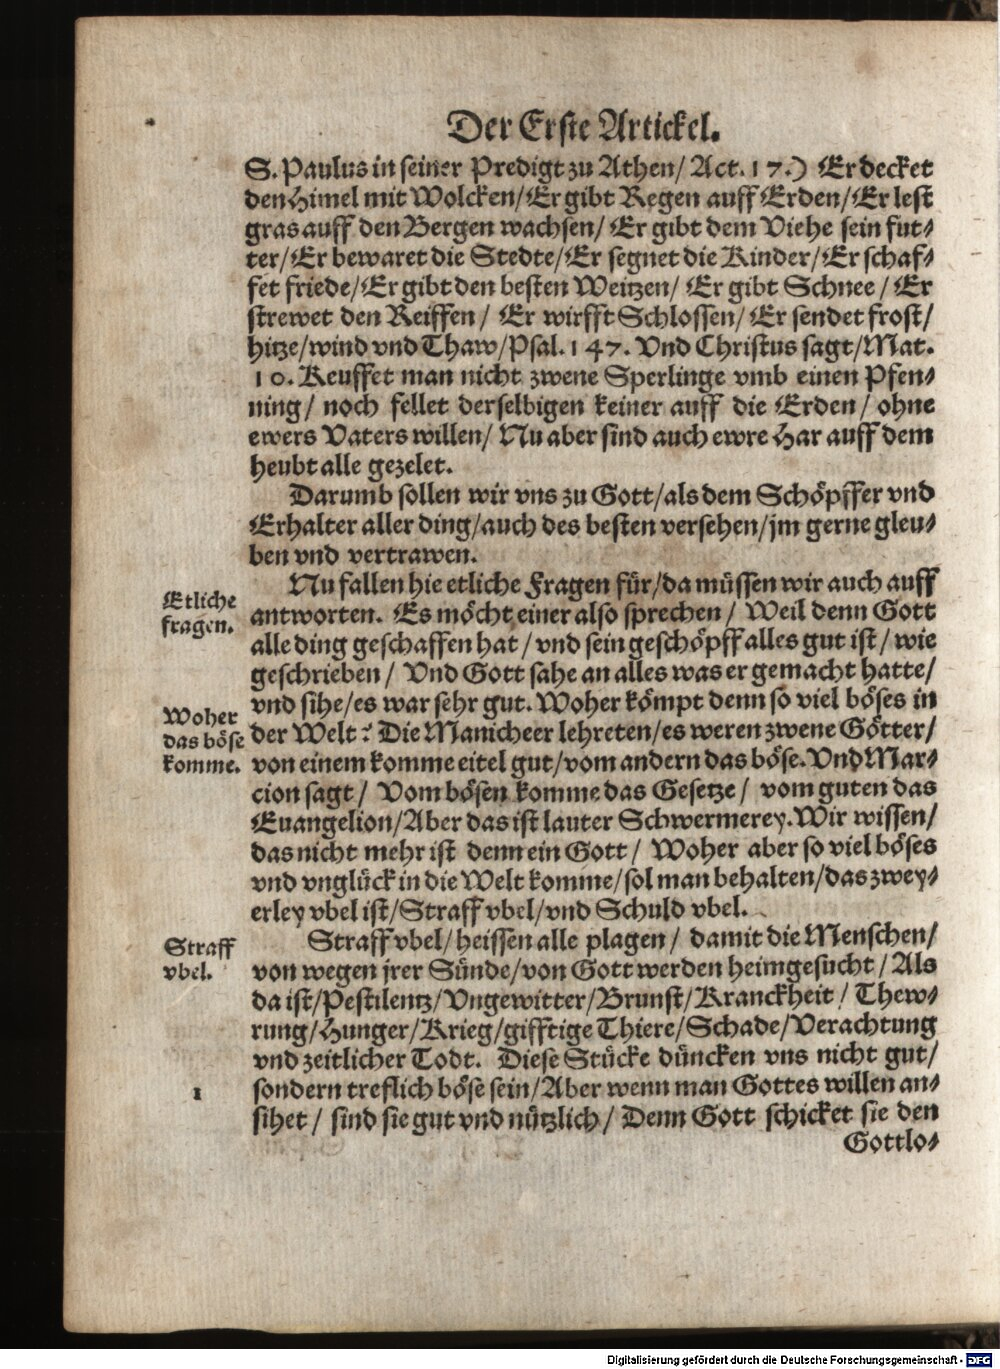 Der Erste Artickel.
S. Paulus in seiner Predigt zu Athen/ Act. 17.) Er decket
den Himel mit Wolcken/ Er gibt Regen auff Erden/ Er lest
gras auff den Bergen wachsen/ Er gibt dem Viehe sein fut-
ter/ Er bewaret die Stedte/ Er segnet die Kinder/ Er schaf-
fet friede/ Er gibt den besten Weitzen/ Er gibt Schnee/ Er
strewet den Reiffen/ Er wirfft Schlossen/ Er sendet frost/
hitze/ wind vnd Thaw/ Psal. 147. Vnd Christus sagt/ Mat.
10. Keuffet man nicht zwene Sperlinge vmb einen Pfen-
ning/ noch fellet derselbigen keiner auff die Erden/ ohne
ewers Vaters willen/ Nu aber sind auch ewre Har auff dem
heubt alle gezelet.
Darumb sollen wir vns zu Gott/ als dem Schöpffer vnd
Erhalter aller ding/ auch des besten versehen/ jm gerne gleu-
ben vnd vertrawen.
Etliche
fragen.
Nu fallen hie etliche Fragen für/ da müssen wir auch auff
antworten. Es möcht einer also sprechen/ Weil denn Gott
alle ding geschaffen hat/ vnd sein geschöpff alles gut ist/ wie
geschrieben/ Vnd Gott sahe an alles was er gemacht hatte/
vnd sihe/ es war sehr gut. Woher kömpt denn so viel böses in
Woher
das böse
komme.
der Welt? Die Manicheer lehreten/ es weren zwene Götter/
von einem komme eitel gut/ vom andern das böse. Vnd Mar-
cion sagt/ Vom bösen komme das Gesetze/ vom guten das
Euangelion/ Aber das ist lauter Schwermerey. Wir wissen/
das nicht mehr ist denn ein Gott/ Woher aber so viel böses
vnd vnglück in die Welt komme/ sol man behalten/ das zwey-
erley vbel ist/ Straff vbel/ vnd Schuld vbel.
Straff
vbel.
Straff vbel/ heissen alle plagen/ damit die Menschen/
von wegen jrer Sünde/ von Gott werden heimgesucht/ Als
da ist/ Pestilentz/ Vngewitter/ Brunst/ Kranckheit/ Thew-
rung/ Hunger/ Krieg/ gifftige Thiere/ Schade/ Verachtung
vnd zeitlicher Todt. Diese Stücke düncken vns nicht gut/
1
sondern treflich böse sein/ Aber wenn man Gottes willen an-
sihet/ sind sie gut vnd nützlich/ Denn Gott schicket sie den
Gottlo-
Digitalisierung gefördert durch die Deutsche Forschungsgemeinschaft - DFG